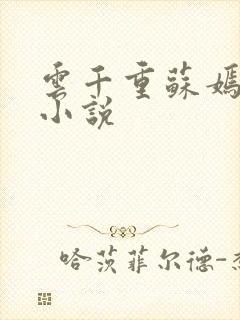 雲千重蘇嫣
小說
哈茨菲尔德-杰